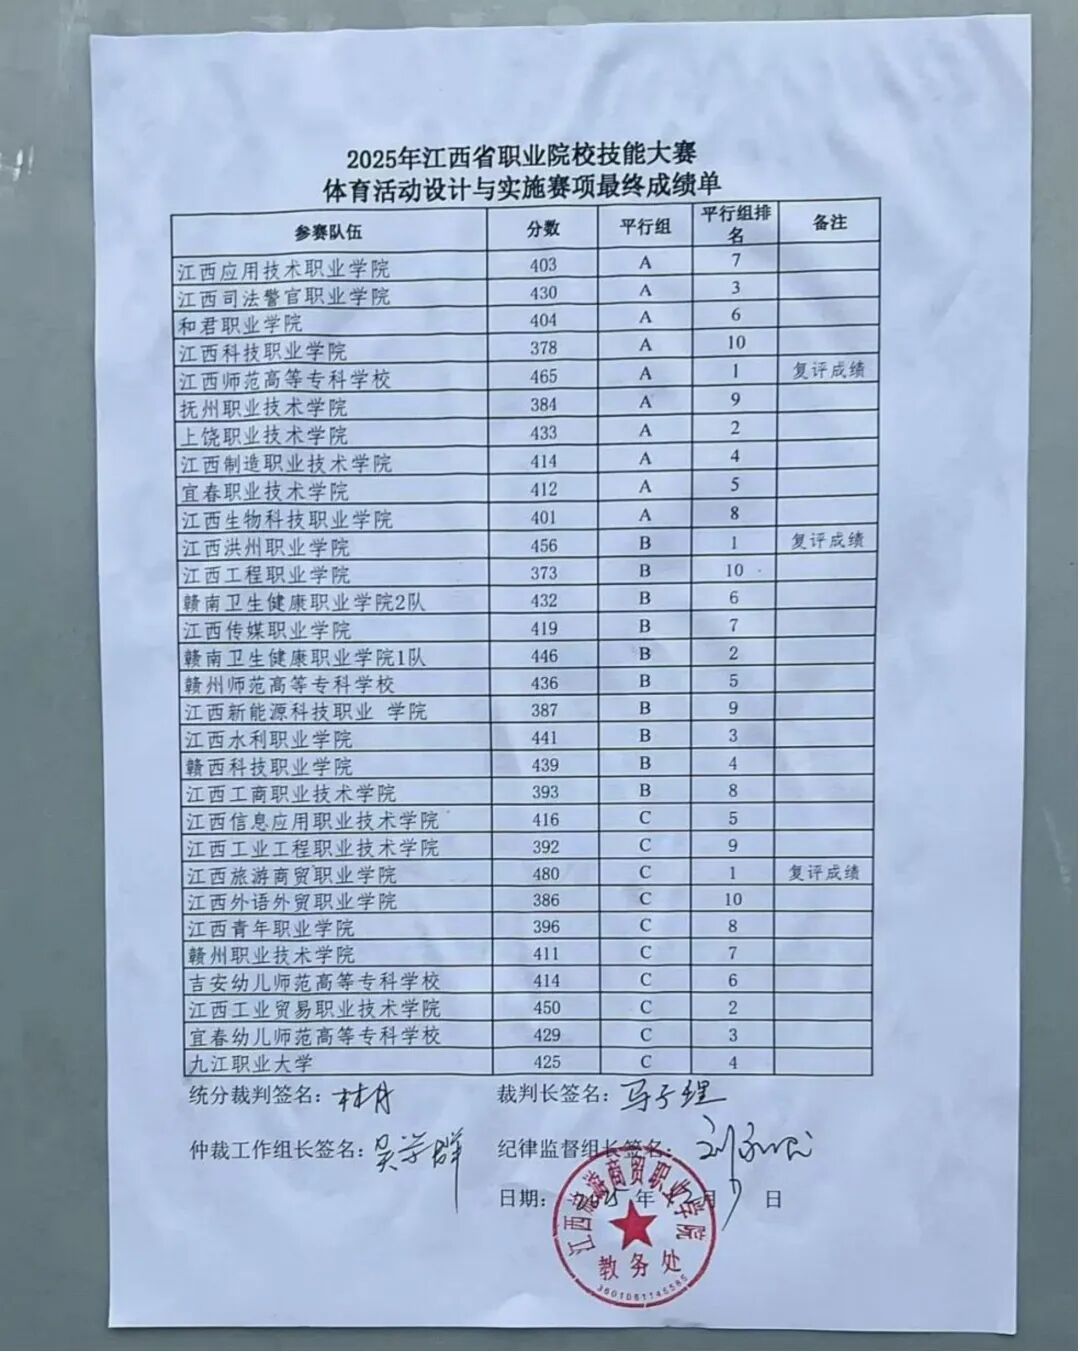 2025年江西省职业院校技能大赛
体育活动设计与实施赛项最终成绩单
参赛队伍 分数 平行组 平行组排名 备注
江西应用技术职业学院 403 A 7
江西司法警官职业学院 430 A 3
和君职业学院 404 A 6
江西科技职业学院 378 A 10
江西师范高等专科学校 465 A 1 复评成绩
抚州职业技术学院 384 A 9
上饶职业技术学院 433 A 2
江西制造职业技术学院 414 A 4
宜春职业技术学院 412 A 5
江西生物科技职业学院 401 A 8
江西洪州职业学院 456 B 1 复评成绩
江西工程职业学院 373 B 10
赣南卫生健康职业学院2队 432 B 6
江西传媒职业学院 419 B 7
赣南卫生健康职业学院1队 446 B 2
赣州师范高等专科学校 436 B 5
江西新能源科技职业 学院 387 B 9
江西水利职业学院 441 B 3
赣西科技职业学院 439 B 4
江西工商职业技术学院 393 B 8
江西信息应用职业技术学院 416 C 5
江西工业工程职业技术学院 392 C 9
江西旅游商贸职业学院 480 C 1 复评成绩
江西外语外贸职业学院 386 C 10
江西青年职业学院 396 C 8
赣州职业技术学院 411 C 7
吉安幼儿师范高等专科学校 414 C 6
江西工业贸易职业技术学院 450 C 2
宜春幼儿师范高等专科学校 429 C 3
九江职业大学 425 C 4
统分裁判签名： 裁判长签名：
仲裁工作组长签名： 纪律监督组长签名：
日期： 2025 年 月 日
江西旅游商贸职业学院
教务处